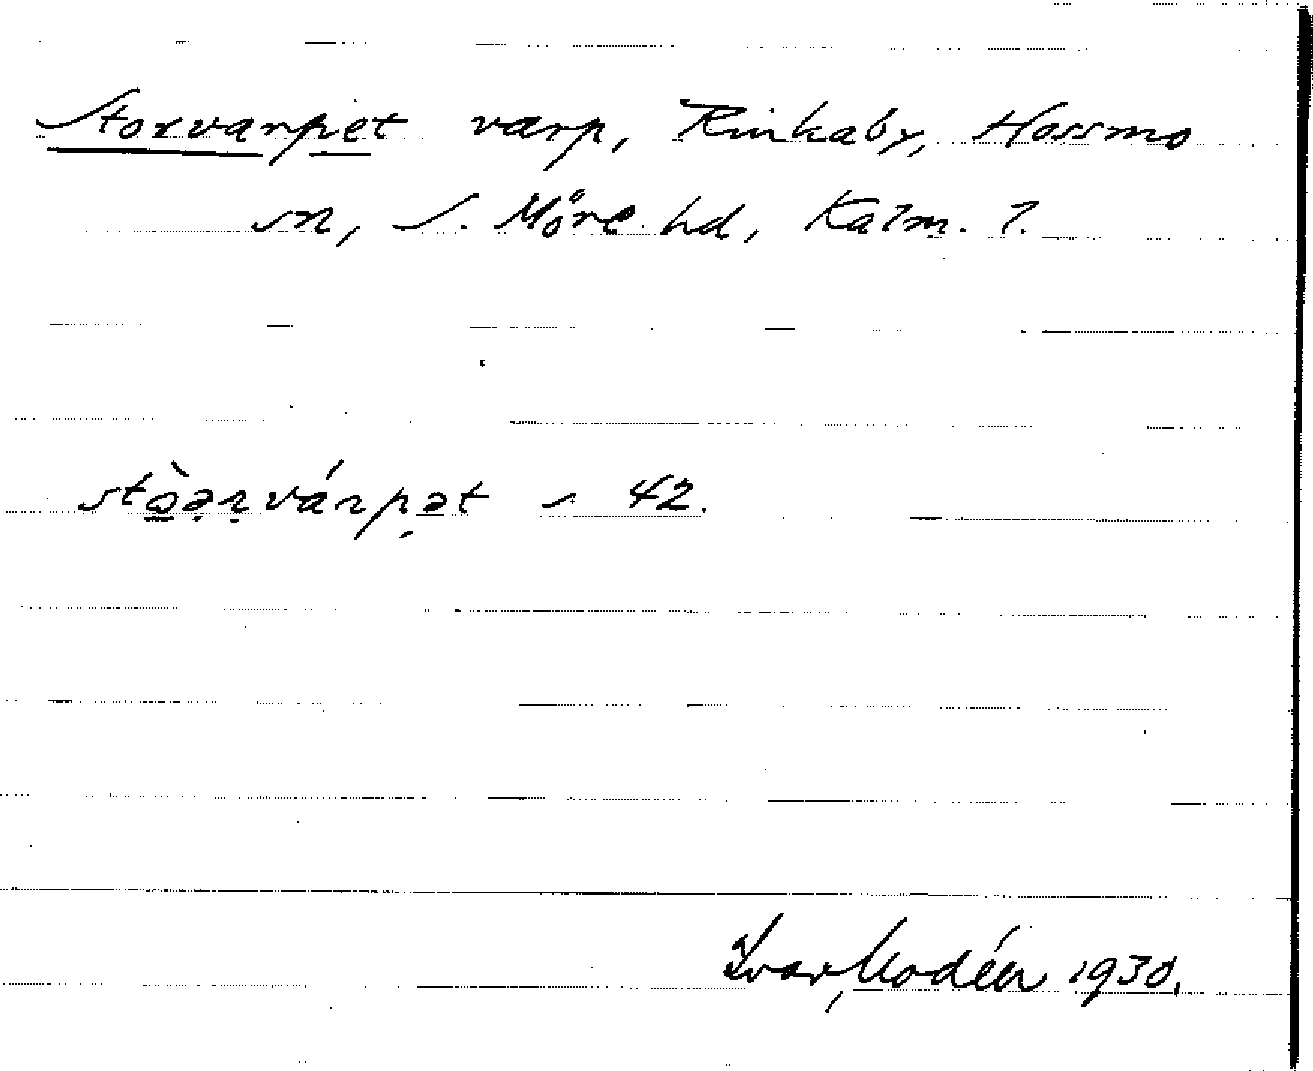 Storvarpet varp, Rinkaby, Hossmo
sn, S. Möre hd, Kalm. l.
stò̱ə̣ṛvárpə̣t ~ 42.
Ivar Modéer 1930.